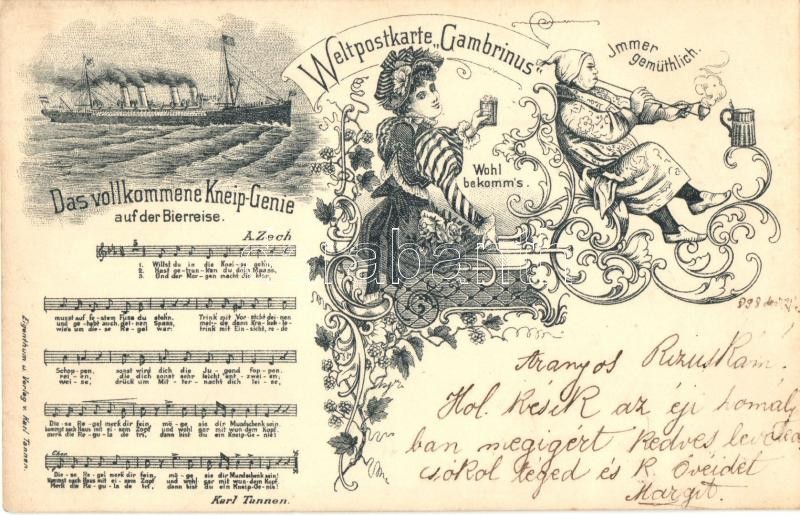 Weltpostkarte „Gambrinus“
Jmmer
gemüthlich.
Wohl
bekomm's.
Das vollkommene Kneip-Genie
auf der Bierreise.
A.Zech
1. Willst du in die Knei-pe gehn,
2. Hast ge-trun-ken du dein Maass,
3. Und der Mor-gen macht dir klar,
musst auf fe-stem Fuss du stehn. Trink mit Vor-sicht dei-nen
und ge-habt auch dei-nen Spass, mei-de dann Kra-keh-le-
wie's um die-se Re-gel war: trink mit Ein-sicht, re-de
Schop-pen, sonst wird dich die Ju-gend fop-pen.
rei-en, die dich sonst sehr leicht ent-zwei-en,
wei-ne, drück um Mit-ter-nacht dich lei-se,
Die-se Regel merk dir fein, mö-ge sie dir Mundschenk sein.
kommst nach Haus mit ei-nem Zopf und wohl gar mit wun-dem Kopf.
merk die Re-gu-la de tri, dann bist du ein Kneip-Ge-nie!
Chor.
Die-se Regel merk dir fein, mö-ge sie dir Mundschenk sein!
kommst nach Haus mit ei-nem Zopf und wohl gar mit wun-dem Kopf.
Merk die Re-gu-la de tri, dann bist du ein Kneip-Ge-nie!
Karl Tannen.
Eigenthum u. Verlag v. Karl Tannen.
898
Aranyos Rizuskám!
Hol késik az éji homály
ban megigért kedves
csókol téged és k. Övéidet
Margit.